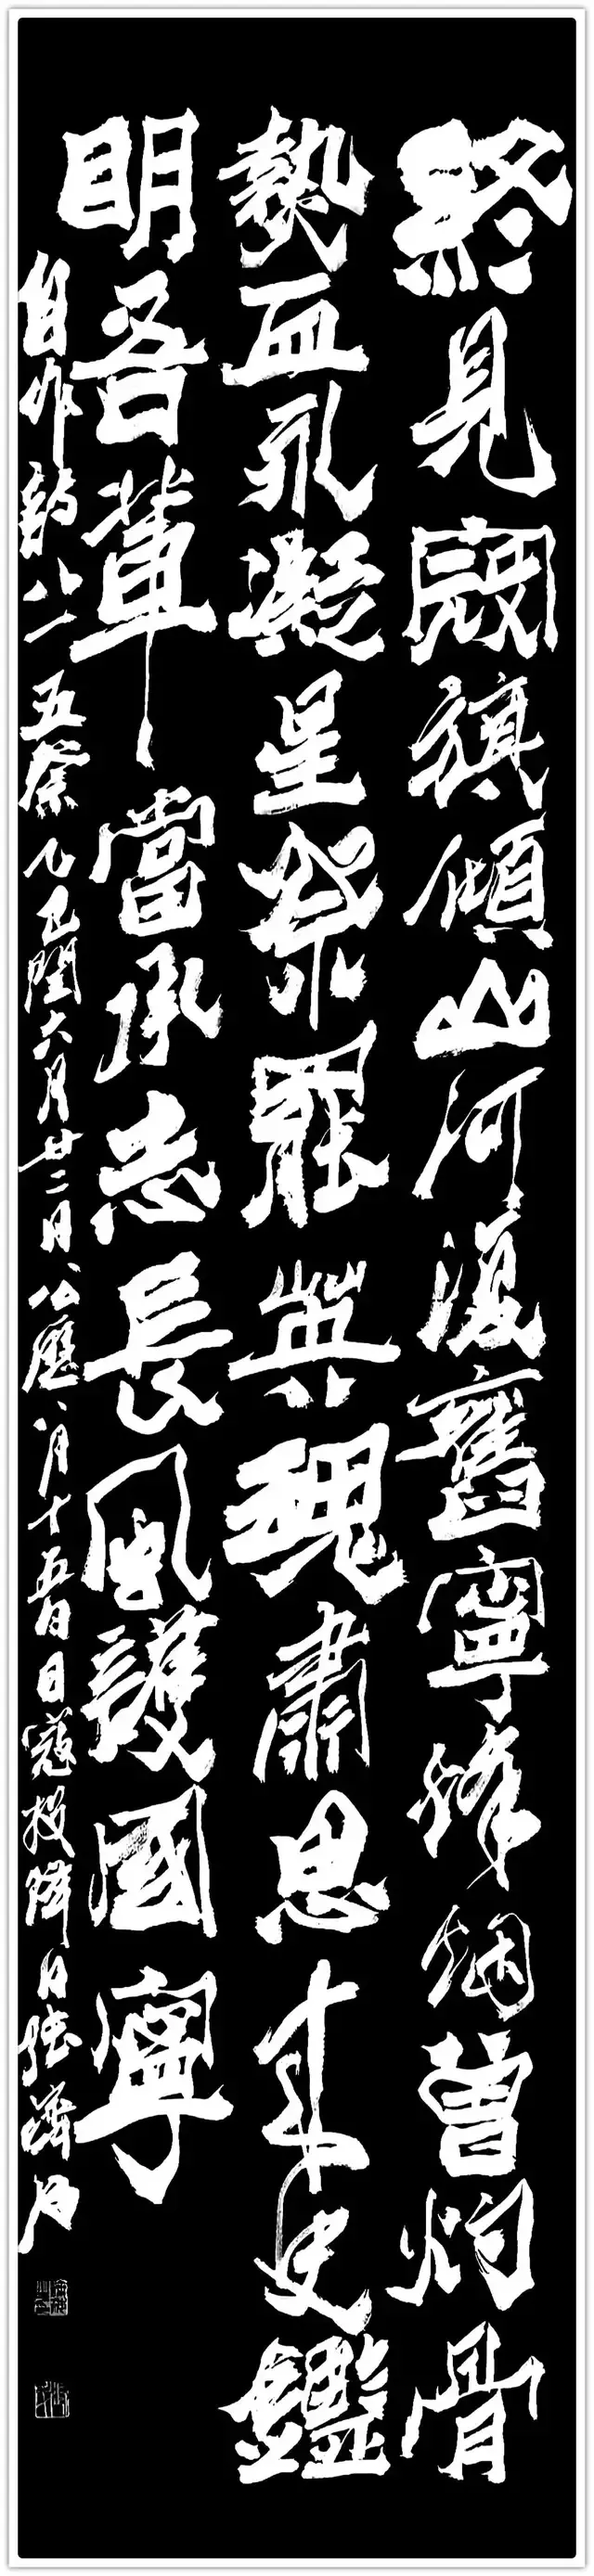 終見寇旗傾山河復舊寧烽烟曾灼骨
熱血永凝星祭罷英魂肅思来史鑑
明吾輩當承志長風護國寧
自作詩八一五祭乙巳閏六月廿二日公曆八月十五日日寇投降日